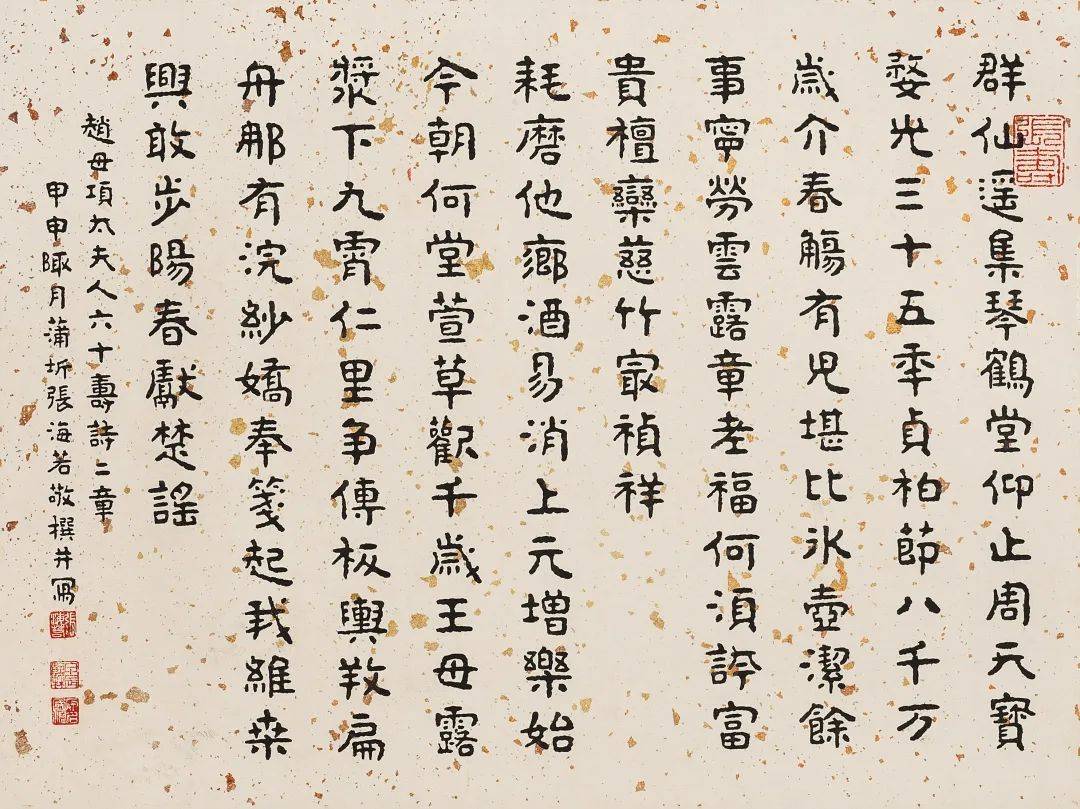 群仙遥集琴鶴堂仰止周天寳
婺光三十五季貞柏節八千万
歲介春觴有児堪比氷壺潔餘
事寧勞雲露章老福何湏誇富
貴檀欒慈竹冣禎祥
耗磨他鄉酒易消上元增樂始
今朝何堂萱草歡千歲王母露
漿下九霄仁里爭傳板輿教扁
舟那有浣紗嬌奉箋起我維桒
興敢步陽春獻楚謡
趙母項太夫人六十壽詩二章
甲申陬月蒲圻張海若敬撰并寫